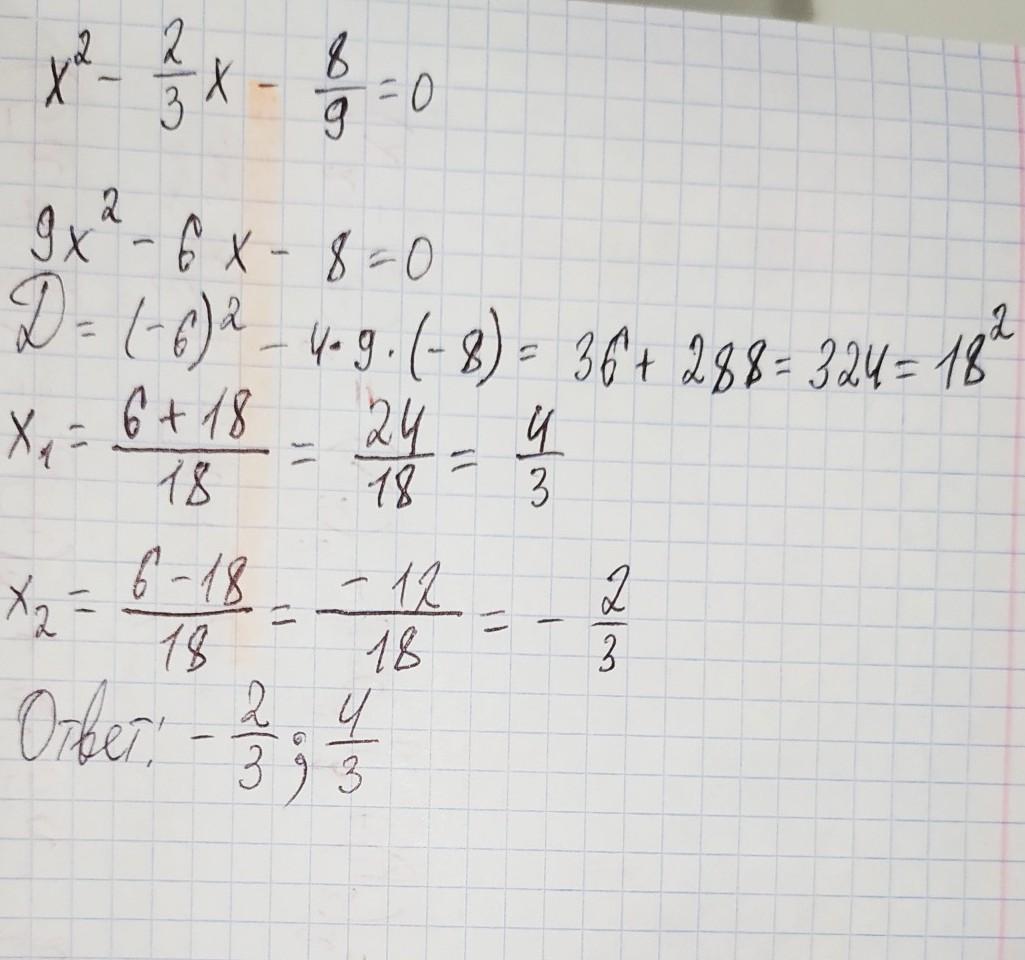 x² - 2/3 x - 8/9 = 0
9x² - 6x - 8 = 0
D = (-6)² - 4·9·(-8) = 36 + 288 = 324 = 18²
x₁ = (6+18)/18 = 24/18 = 4/3
x₂ = (6-18)/18 = -12/18 = - 2/3
Ответ: - 2/3 ; 4/3